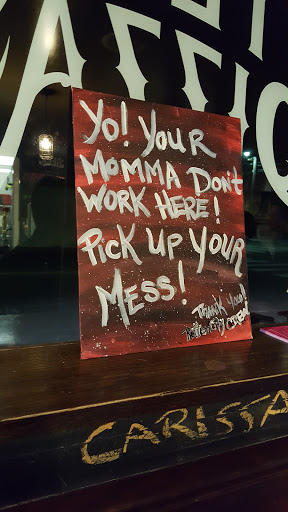 Yo! Your
Momma Don't
Work Here!
Pick up your
Mess!
Thank you!
CARISTA